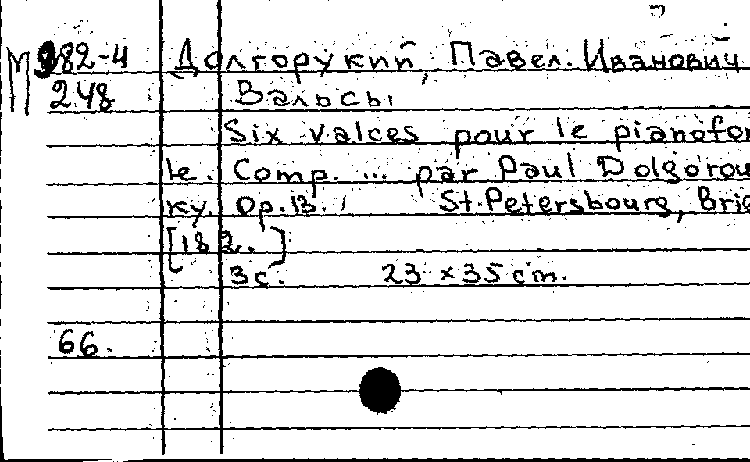 М982-4 Долгорукий, Павел Иванович
248 Вальсы
Six valces pour le pianofor
te. Comp. ... par Paul Dolgorou
ky. Op.13. St.Petersbourg, Brie
[182. ]
3с. 23 x 35 cm.
66.